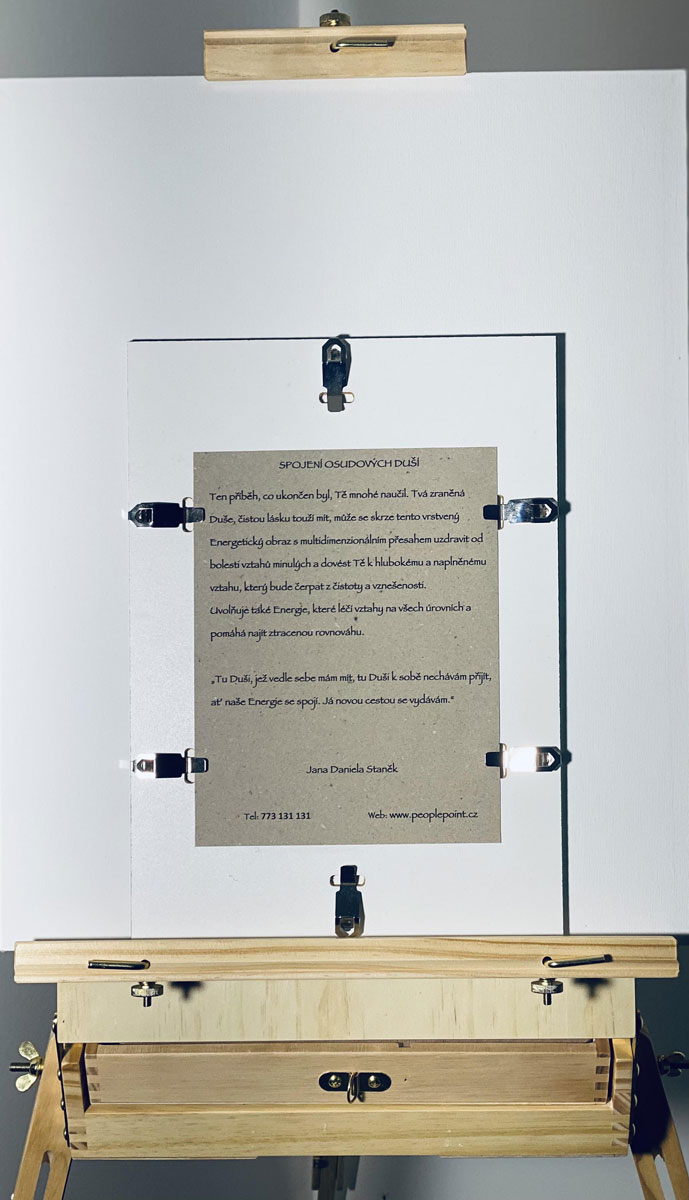 SPOJENÍ OSUDOVÝCH DUŠÍ
Ten příběh, co ukončen byl, Tě mnohé naučil. Tvá zraněná
Duše, čistou lásku touží mít, může se skrze tento vrstvený
Energetický obraz s multidimenzionálním přesahem uzdravit od
bolestí vztahů minulých a dovést Tě k hlubokému a naplněnému
vztahu, který bude čerpat z čistoty a vznešenosti.
Uvolňuje také Energie, které léčí vztahy na všech úrovních a
pomáhá najít ztracenou rovnováhu.
„Tu Duši, jež vedle sebe mám mít, tu Duši k sobě nechávám přijít,
ať naše Energie se spojí. Já novou cestou se vydávám."
Jana Daniela Staněk
Tel: 773 131 131 Web: www.peoplepoint.cz